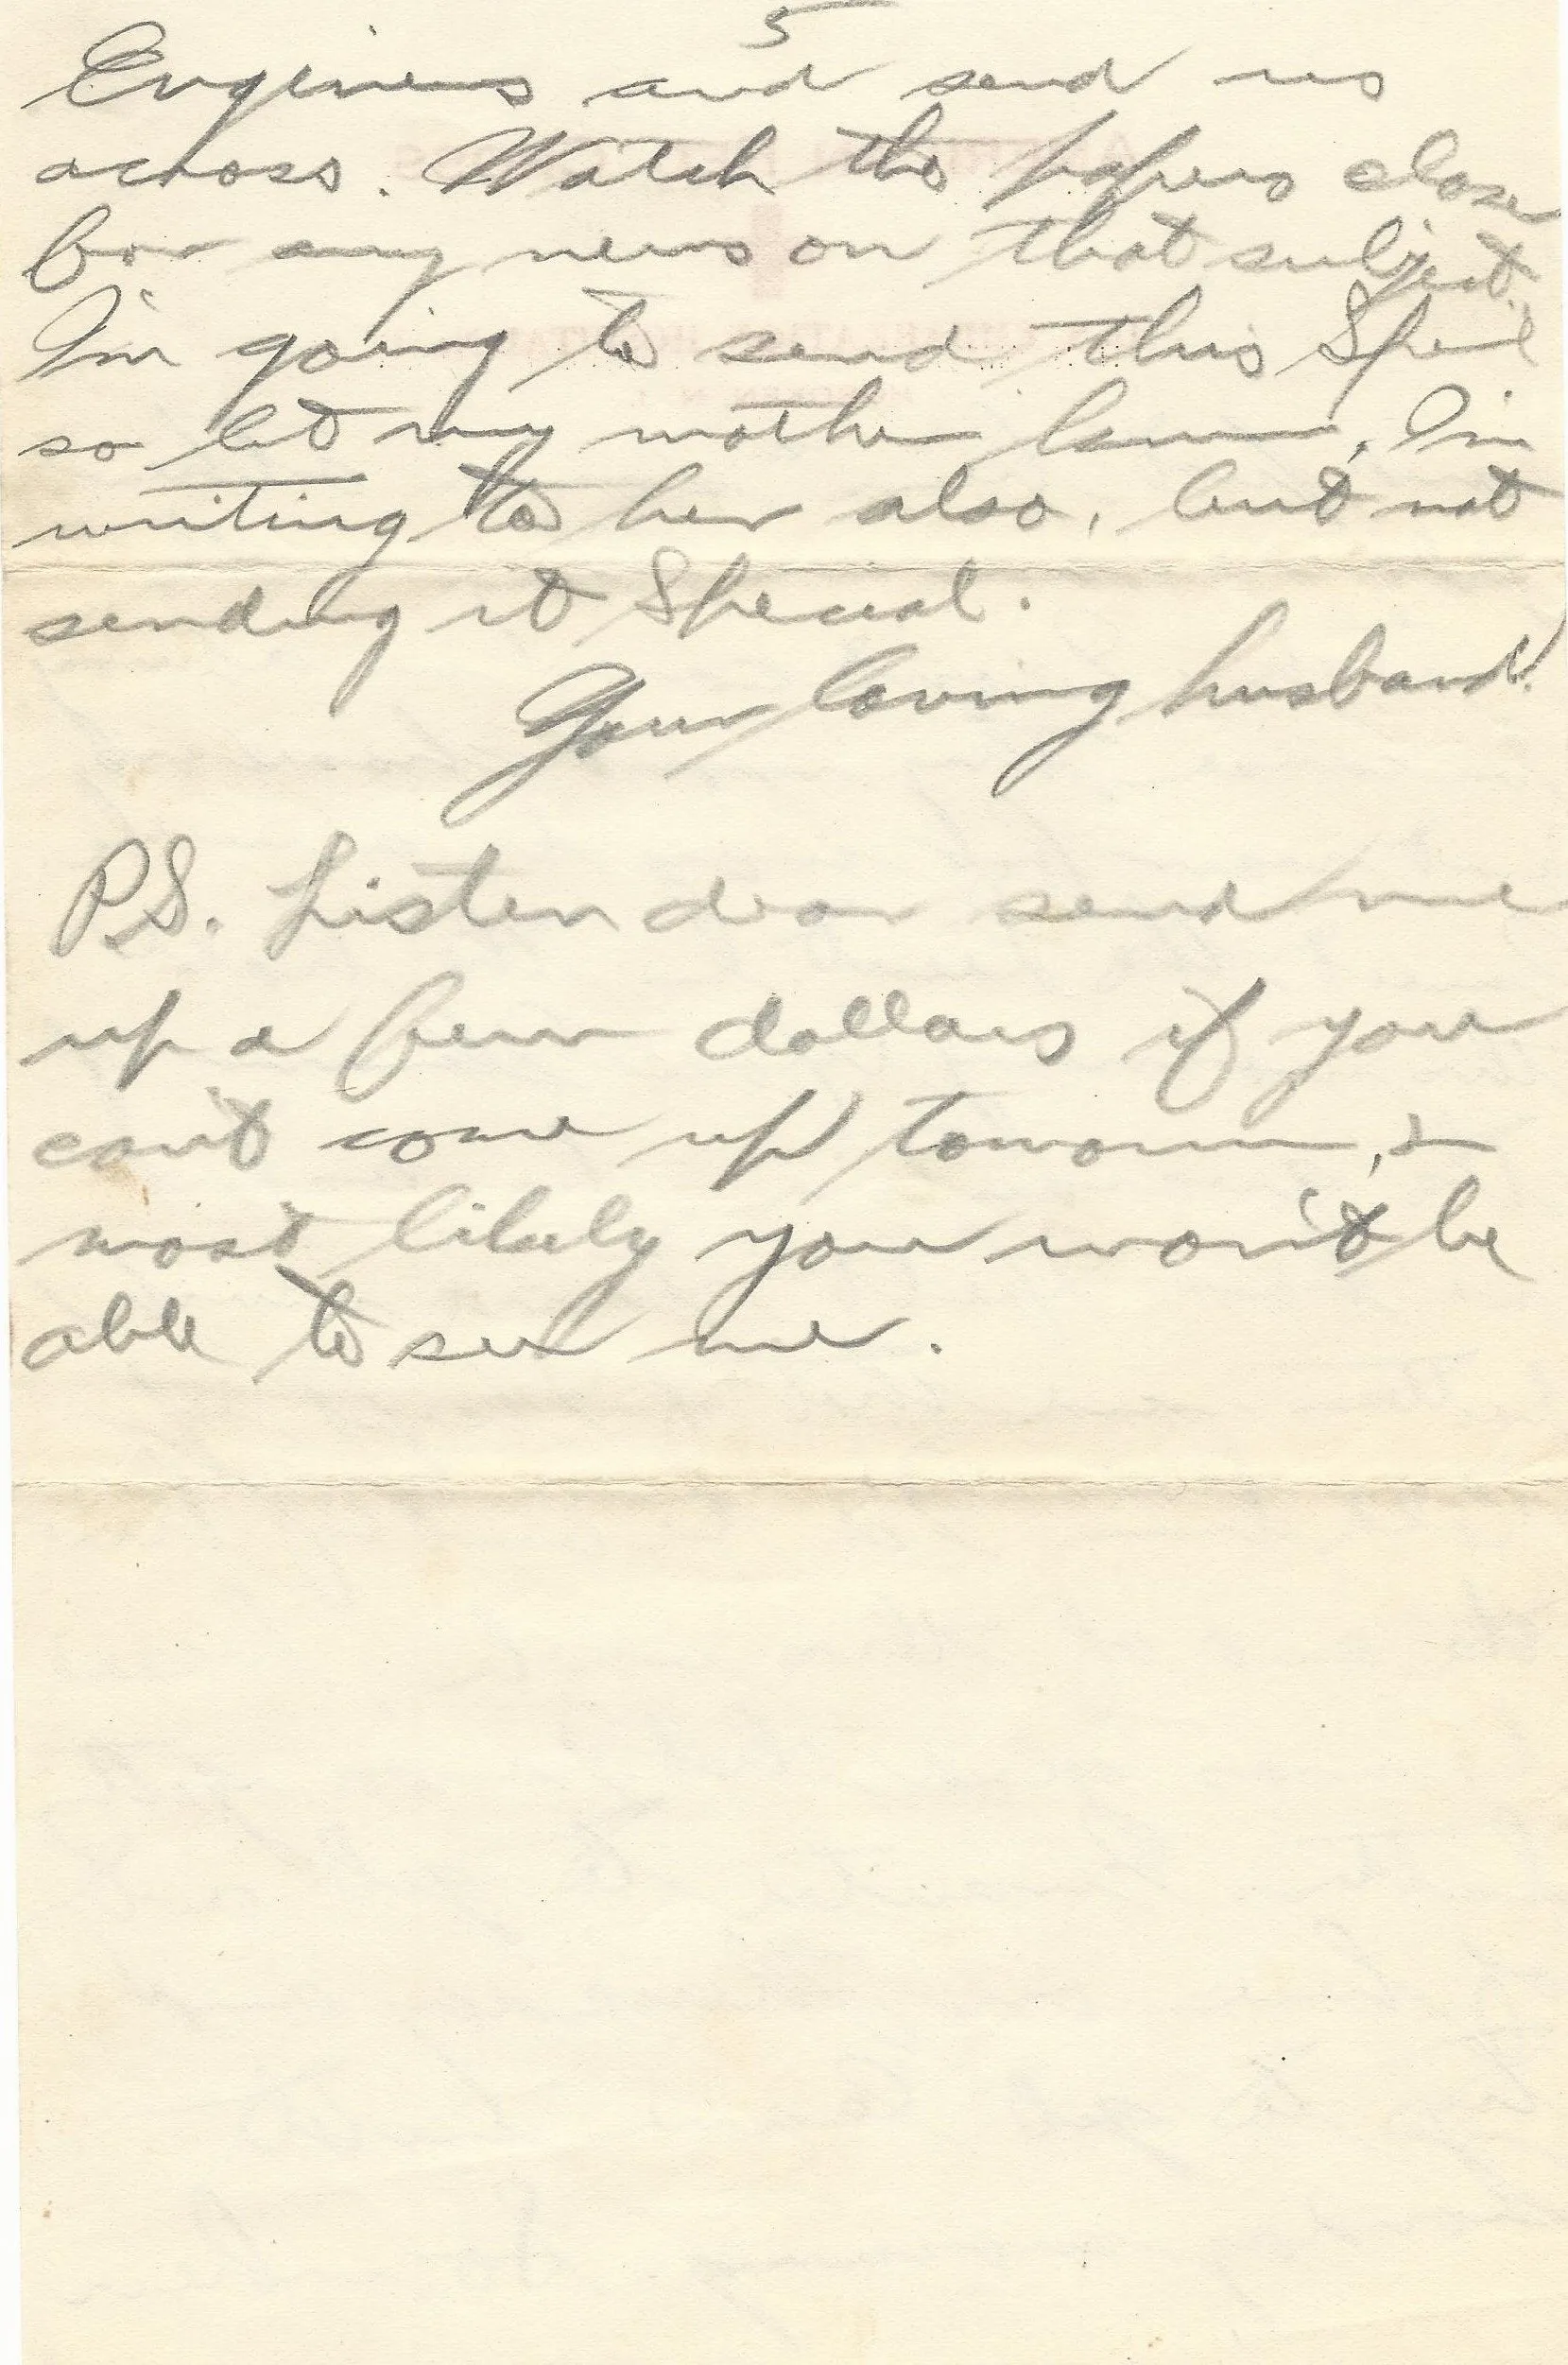 5
Engineers and send us
across. Watch the papers close
for any news on that subject.
I'm going to send this Special
so let my mother know. I'm
writing to her also, but not
sending it Special.
Your loving husband.
P.S. Listen dear send me
up a few dollars if you
can't come up tomorrow, &
most likely you won't be
able to see me.